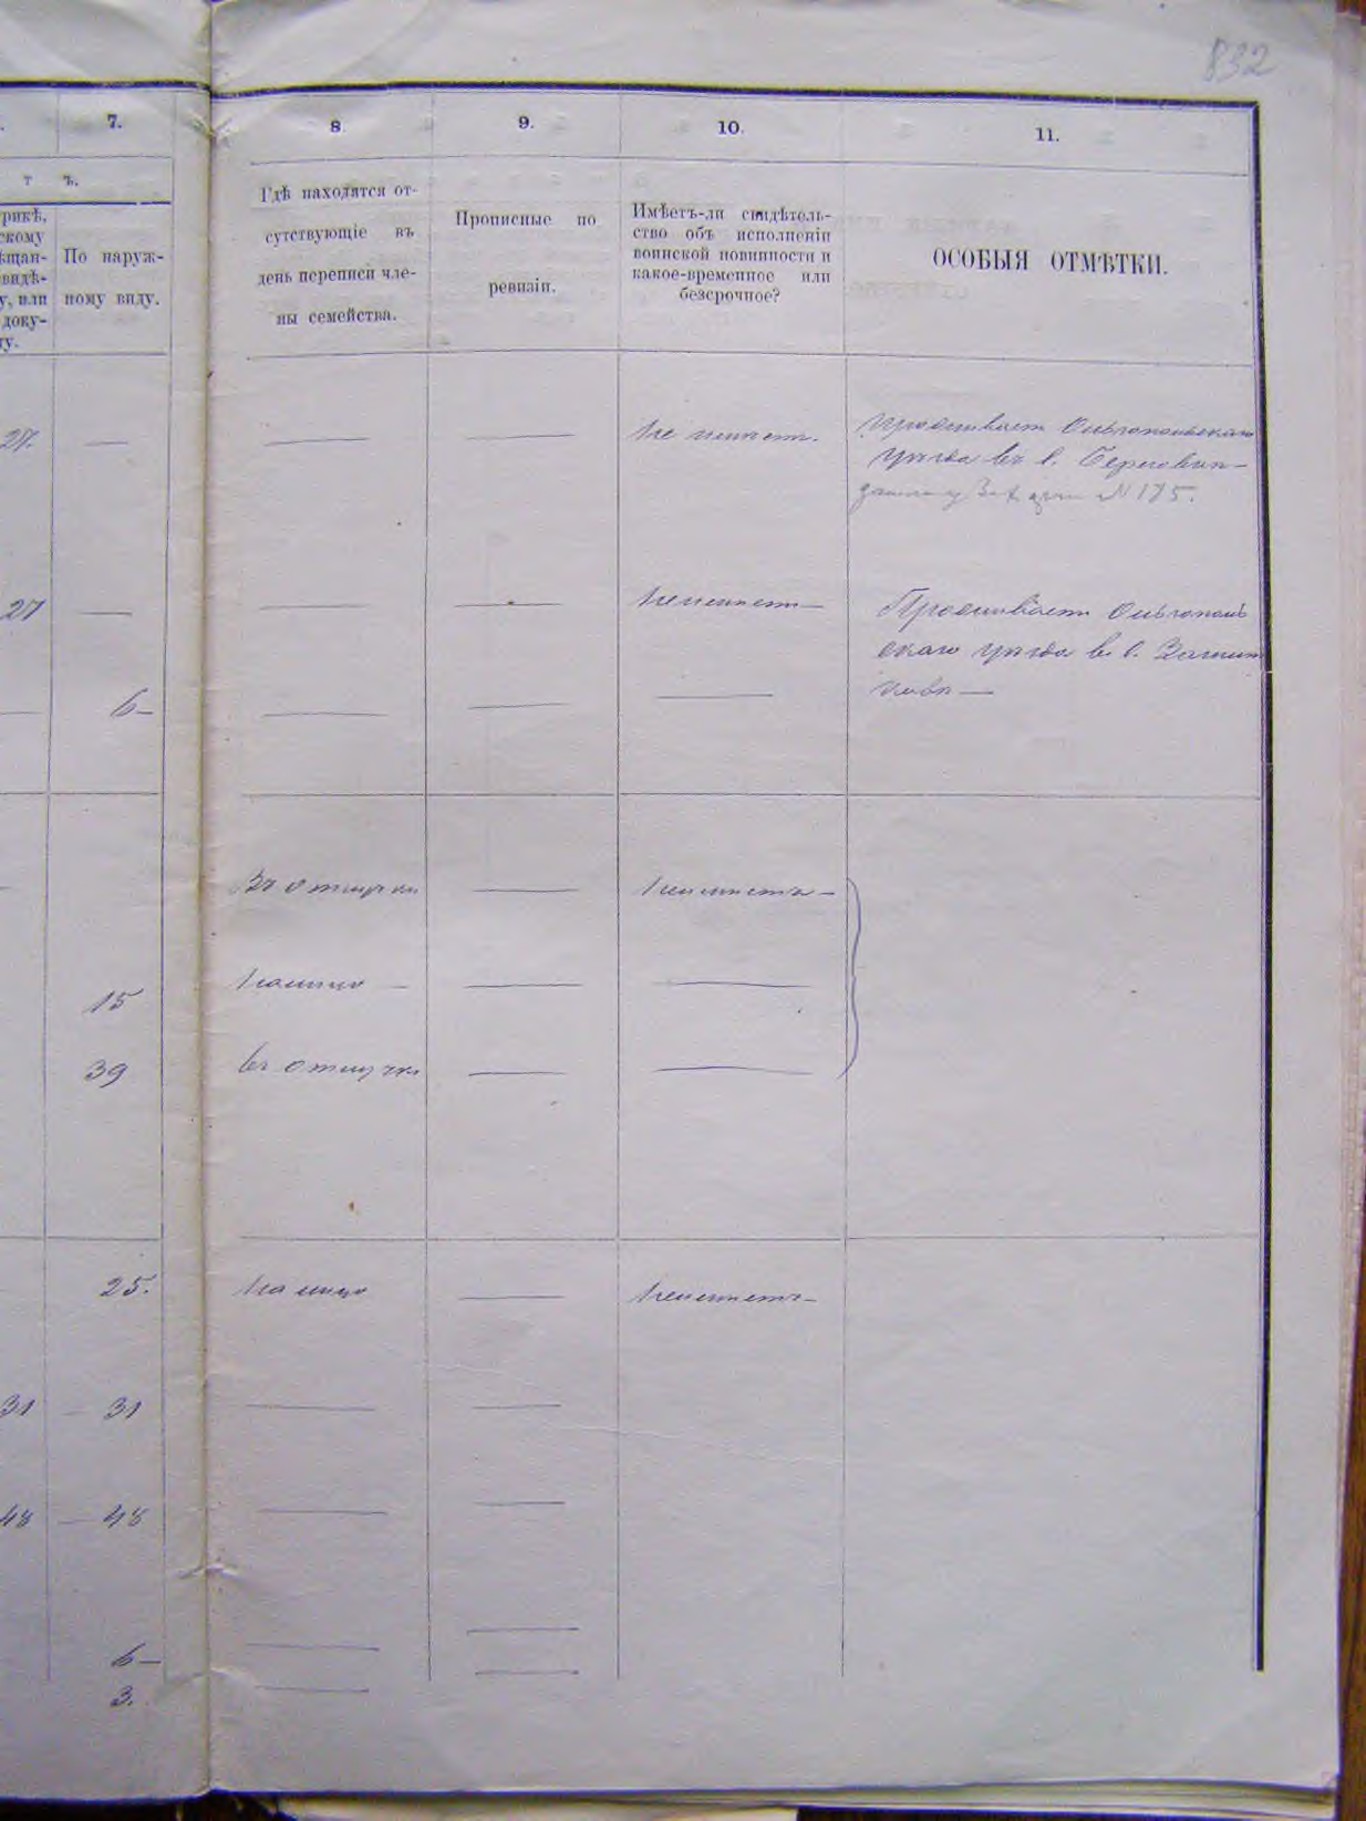 832
7.
8
9.
10.
11.
т ъ.
рикѣ,
скому
ѣщан-
видѣ-
у, или
доку-
ту.
По наруж-
ному виду.
Гдѣ находятся от-
сутствующіе въ
день переписи чле-
ны семейства.
Прописные по
ревизіи.
Имѣетъ-ли свидѣтель-
ство объ исполненіи
воинской повинности и
какое-временное или
безсрочное?
ОСОБЫЯ ОТМѢТКИ.
27. —
— — Не имѣетъ. Проживаетъ Ольгопольскаго
уѣзда въ с.
№ 175.
27 —
— — Не имѣетъ — Проживаетъ Ольгополь
скаго уѣзда въ с.
— 6 — — — —
Въ отлучки — Не имѣетъ —
15 Налицо — — —
39 Въ отлучки — —
25. На лицо — Не имѣетъ —
31 — 31 — —
48 — 48 — —
6 — — —
3. — —